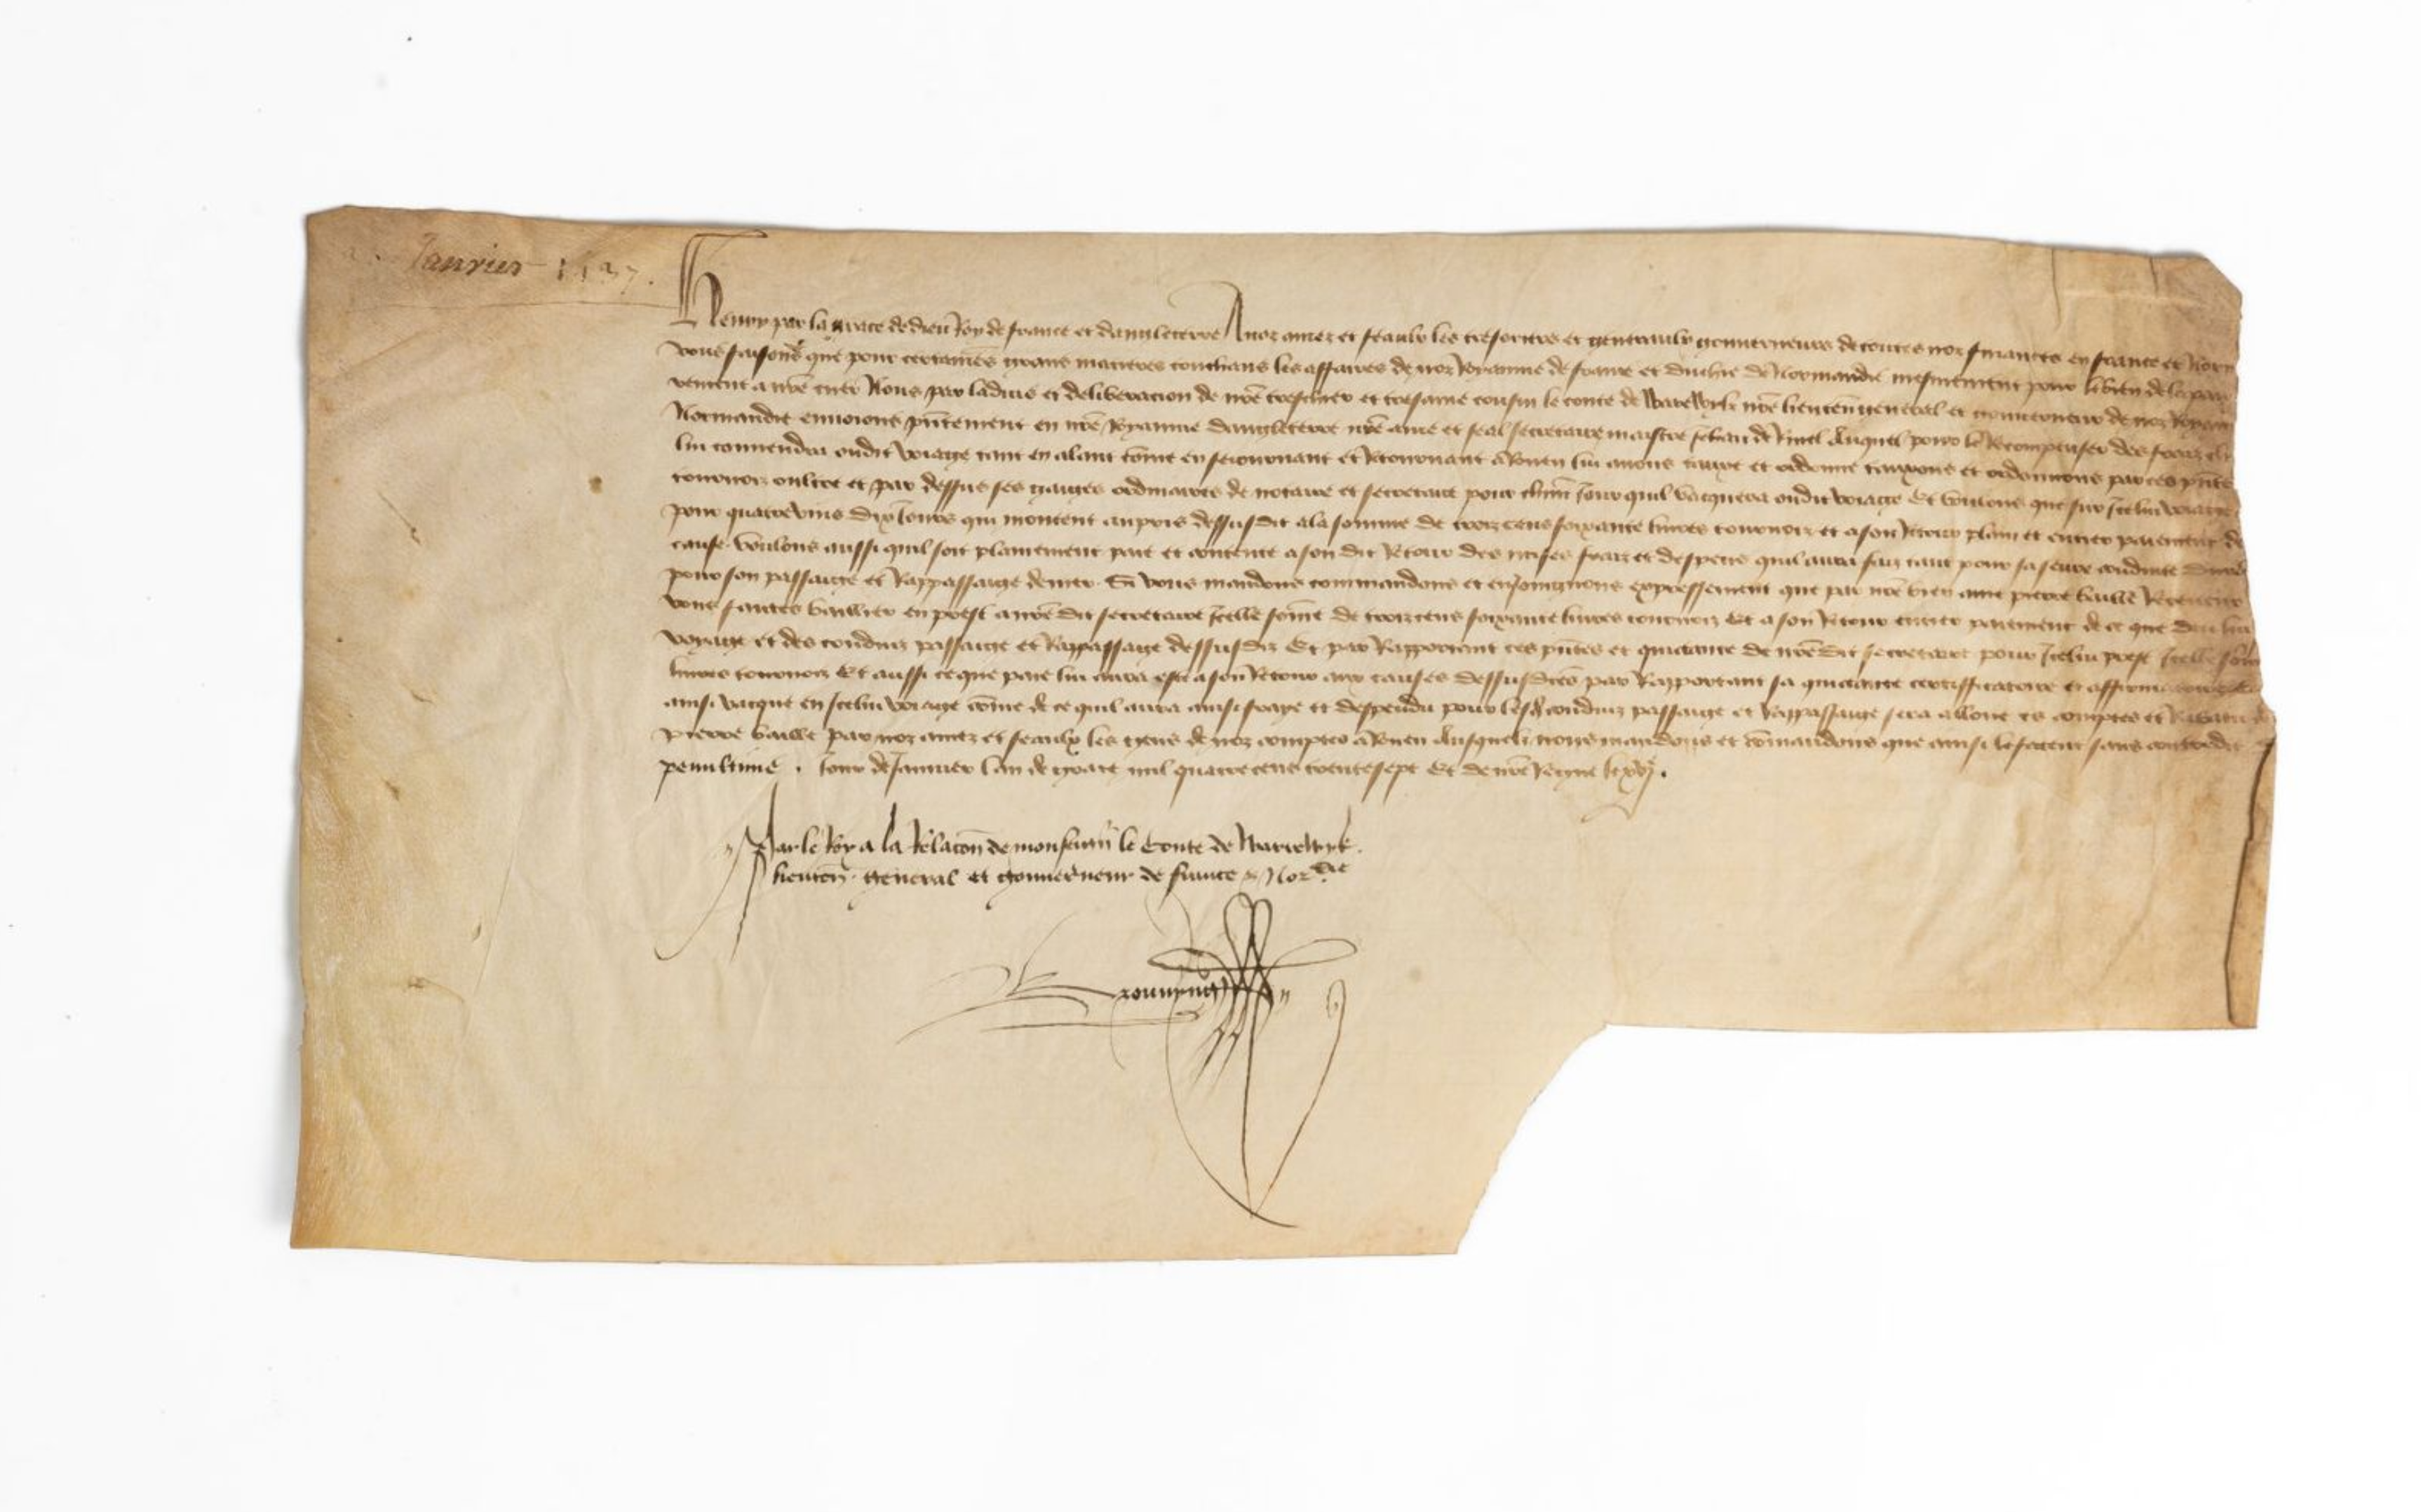 Janvier 1437.
Henry par la grace de dieu Roy de france et dangleterre A noz amez et feaulx les tresoriers et generaulx gouverneurs de toutes noz finances en france et Norm
vous faisons que pour certaines grans matieres touchans les affaires de noz Royaume de france et duchie de Normandie mesmement pour le bien de la paix
nre Nous par ladvis et deliberacion de nre treschier et tresame cousin le conte de Warewyk nre lieuten general et gouverneur de noz Royau
Normandie envoions pntement en nre Royaume dangleterre nre ame et feal secretaire maistre Jehan de Rinel Auquel pour le Recompenser des fraiz
lui convendra oudit voiage tant en alant come en seiournant et Retournant a Rouen lui avons tauxe et ordonne tauxons et ordonnons par ces pntes
tournois oultre et par dessus ses gaiges ordinaires de notaire et secretaire pour chun Jour quil vacquera oudit voiage Et voulons que sur Icelui voiage
pour quatrevins dix Jours qui montent au pris dessusdit a la somme de trois cens soixante livres tournois et a son Retour plain et entier paiement de
cause. voulons aussi quil soit plainement paie et contente a son dit Retour des mises fraiz et despens quil aura faiz tant pour sa seure conduite
pour son passaige et Rappassaige de mer. Si vous mandons commandons et enJoingnons expressement que par nre bien ame pierre baille Receveur
vous faictes baillier en prest a nredit secretaire Icelle some de trois cens soixante livres tournois Et a son Retour entier paiement de ce que deu lui
voyage et des conduiz passaige et Rappassage dessusdiz Et par Rapportant ces pntes et quictance de nredit secretaire pour Icelui prest Icelle some
livres tournois Et aussi ce que paie lui aura este a son Retour aux causes dessusdictes par Rapportant sa quictance certifficatoire et affirmatoire
ainsi vacque en Icelui voiage come de ce quil aura ainsi fraye et despendu pour lesd conduiz passaige et Rappassaige sera alloue es comptes et Rabatu de
Pierre baille par noz amez et feaulx les gens de noz comptes a Rouen Ausquelx nous mandons et comandons que ainsi le facent sans contredit
penultime. Jour de Janvier lan de grace mil quatre cens trentesept Et de nre Regne le xvj.
Par le Roy a la Relacon de monseigneur le Conte de Warewyk.
lieuten. general et gouverneur de france & Nordie